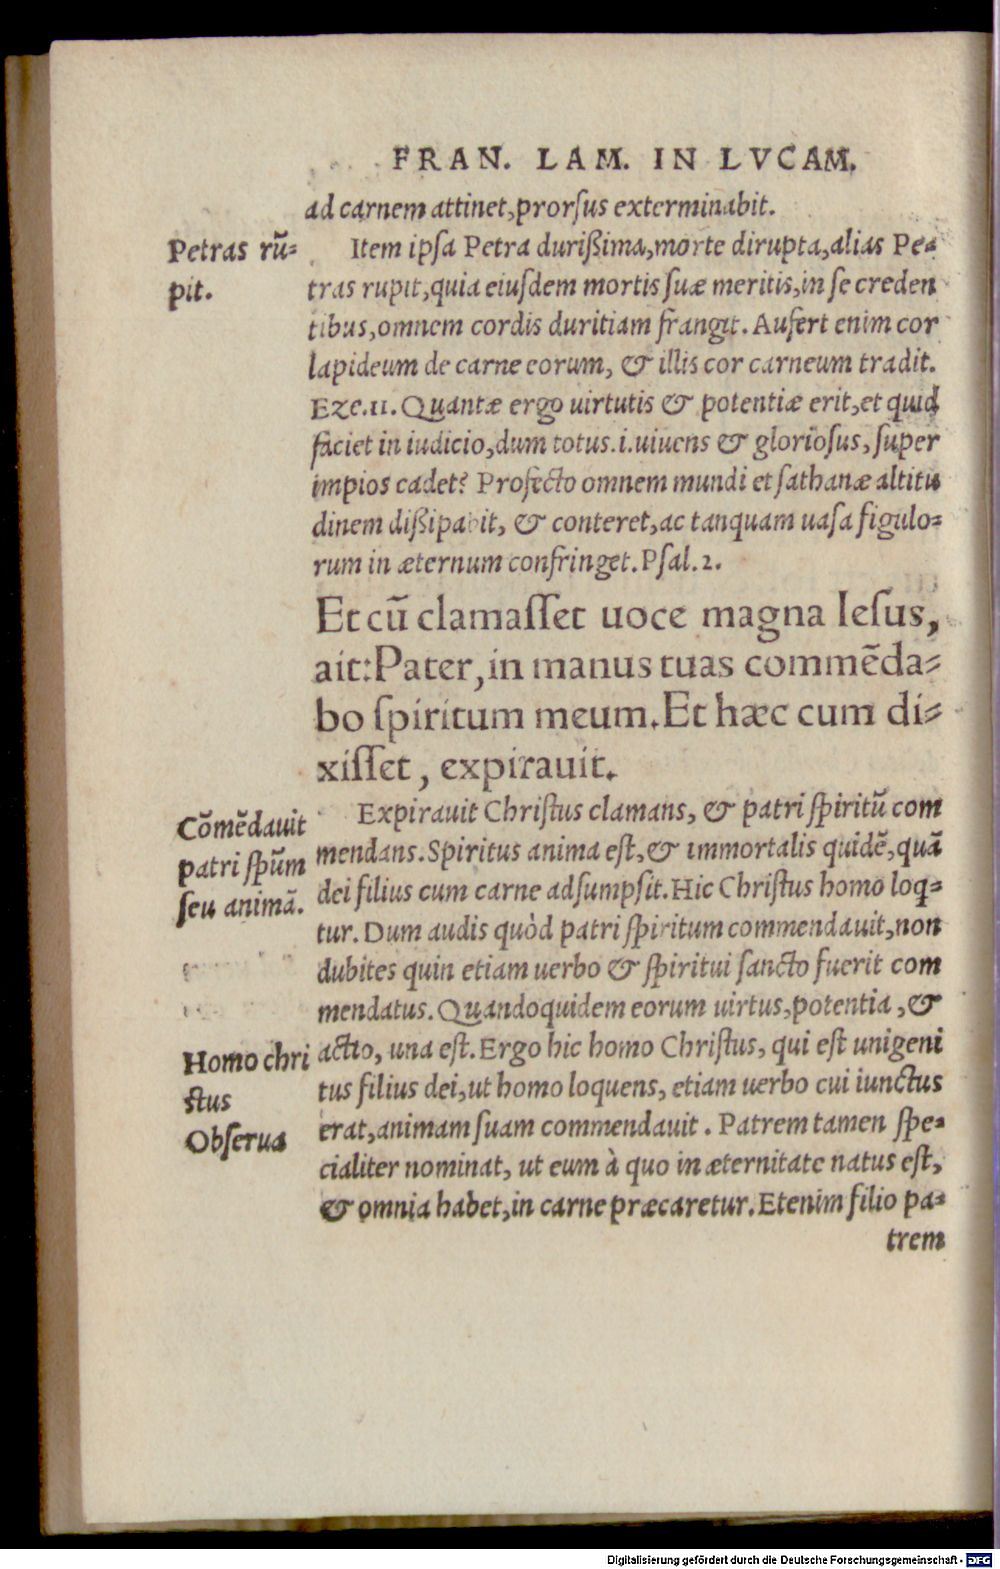 FRAN. LAM. IN LVCAM.
ad carnem attinet, prorſus exterminabit.
Petras rū-
pit.
Item ipſa Petra durißima, morte dirupta, alias Pe-
tras rupit, quia eiuſdem mortis ſuæ meritis, in ſe creden
tibus, omnem cordis duritiam frangit. Aufert enim cor
lapideum de carne eorum, & illis cor carneum tradit.
Eze. 11. Quantæ ergo uirtutis & potentiæ erit, et quid
faciet in iudicio, dum totus .i. uiuens & glorioſus, ſuper
impios cadet? Profecto omnem mundi et ſathanæ altitu
dinem dißipabit, & conteret, ac tanquam uaſa figulo-
rum in æternum confringet. Pſal. 2.
Et cū clamaſſet uoce magna Ieſus,
ait: Pater, in manus tuas commēda-
bo ſpiritum meum. Et hæc cum di-
xiſſet, expirauit.
Cōmēdauit
patri ſpūm
ſeu animā.
Expirauit Chriſtus clamans, & patri ſpiritū com
mendans. Spiritus anima eſt, & immortalis quidē, quā
dei filius cum carne adſumpſit. Hic Chriſtus homo loq-
tur. Dum audis quòd patri ſpiritum commendauit, non
dubites quin etiam uerbo & ſpiritui ſancto fuerit com
mendatus. Quandoquidem eorum uirtus, potentia, &
Homo chri
ſtus
Obſerua
actio, una eſt. Ergo hic homo Chriſtus, qui eſt unigeni
tus filius dei, ut homo loquens, etiam uerbo cui iunctus
erat, animam ſuam commendauit. Patrem tamen ſpe-
cialiter nominat, ut eum à quo in æternitate natus eſt,
& omnia habet, in carne præcaretur. Etenim filio pa-
trem
Digitalisierung gefördert durch die Deutsche Forschungsgemeinschaft - DFG